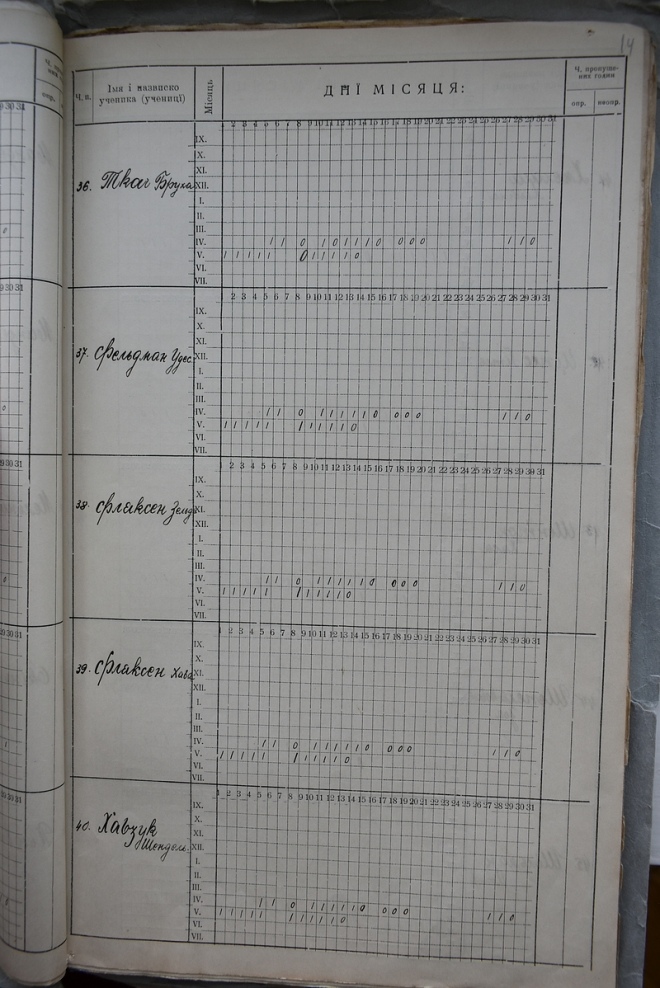 14
Ч. п.
Імя і назвиско
ученика (учениці)
Місяць
ДНІ МІСЯЦЯ:
Ч. пропуще-
них годин
опр.
неопр.
1 2 3 4 5 6 7 8 9 10 11 12 13 14 15 16 17 18 19 20 21 22 23 24 25 26 27 28 29 30 31
36. Ткач Брука
IX.
X.
XI.
XII.
I.
II.
III.
IV. / / 0 / 0 / / / 0 0 0 0 / / 0
V. / / / / / 0 / / / / 0
VI.
VII.
1 2 3 4 5 6 7 8 9 10 11 12 13 14 15 16 17 18 19 20 21 22 23 24 25 26 27 28 29 30 31
37. Фельдман Удес
IX.
X.
XI.
XII.
I.
II.
III.
IV. / / 0 / / / / / 0 0 0 0 / / 0
V. / / / / / / / / / / 0
VI.
VII.
1 2 3 4 5 6 7 8 9 10 11 12 13 14 15 16 17 18 19 20 21 22 23 24 25 26 27 28 29 30 31
38. Флаксен
IX.
X.
XI.
XII.
I.
II.
III.
IV. / / 0 / / / / / 0 0 0 0 / / 0
V. / / / / / / / / / / 0
VI.
VII.
1 2 3 4 5 6 7 8 9 10 11 12 13 14 15 16 17 18 19 20 21 22 23 24 25 26 27 28 29 30 31
39. Флаксен Хава
IX.
X.
XI.
XII.
I.
II.
III.
IV. / / 0 / / / / / 0 0 0 0
V. / / / / / / / / / / 0 / / 0
VI.
VII.
1 2 3 4 5 6 7 8 9 10 11 12 13 14 15 16 17 18 19 20 21 22 23 24 25 26 27 28 29 30 31
40. Хавзук
Шендель
IX.
X.
XI.
XII.
I.
II.
III.
IV. / / 0 / / / / / 0 0 0 0
V. / / / / / / / / / / 0 / / 0
VI.
VII.